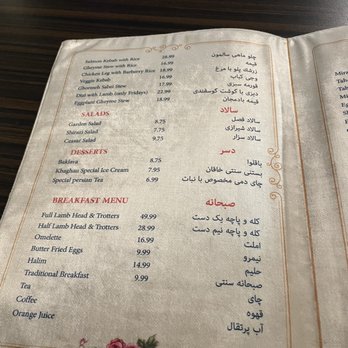 Salmon Kebab with Rice 28.99 چلو ماهی سالمون
Gheyme Stew with Rice 16.99 قیمه
Chicken Leg with Barberry Rice 18.99 زرشک پلو با مرغ
Veggie Kebab 16.99 وجی کباب
Ghormeh Sabzi Stew 17.99 قورمه سبزی
Dizi with Lamb (only Fridays) 22.99 دیزی با گوشت گوسفندی
Eggplant Gheyme Stew 18.99 قیمه بادمجان
SALADS سالاد
Garden Salad 8.75 سالاد فصل
Shirazi Salad 7.75 سالاد شیرازی
Ceasar Salad 9.75 سالاد سزار
DESSERTS دسر
Baklava 8.75 باقلوا
Khaghan Special Ice Cream 7.95 بستنی سنتی خاقان
Special persian Tea 6.95 چای دمی مخصوص با نبات
BREAKFAST MENU صبحانه
Full Lamb Head & Trotters 49.99 کله و پاچه یک دست
Half Lamb Head & Trotters 28.99 کله و پاچه نیم دست
Omelette 16.99 املت
Butter Fried Eggs 9.99 نیمرو
Halim 14.99 حلیم
Traditional Breakfast 9.99 صبحانه سنتی
Tea چای
Coffee قهوه
Orange Juice آب پرتقال